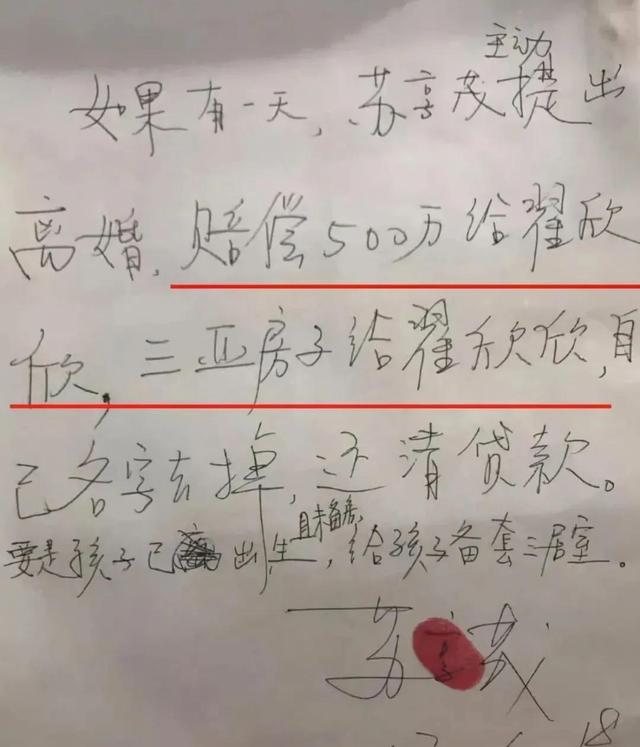 主动
如果有一天，苏享茂提出
离婚，赔偿500万给翟欣
欣，三亚房子给翟欣欣，自
己名字去掉，还清贷款。
且未备房，
要是孩子已出生，给孩子备套三居室。
苏享茂
18